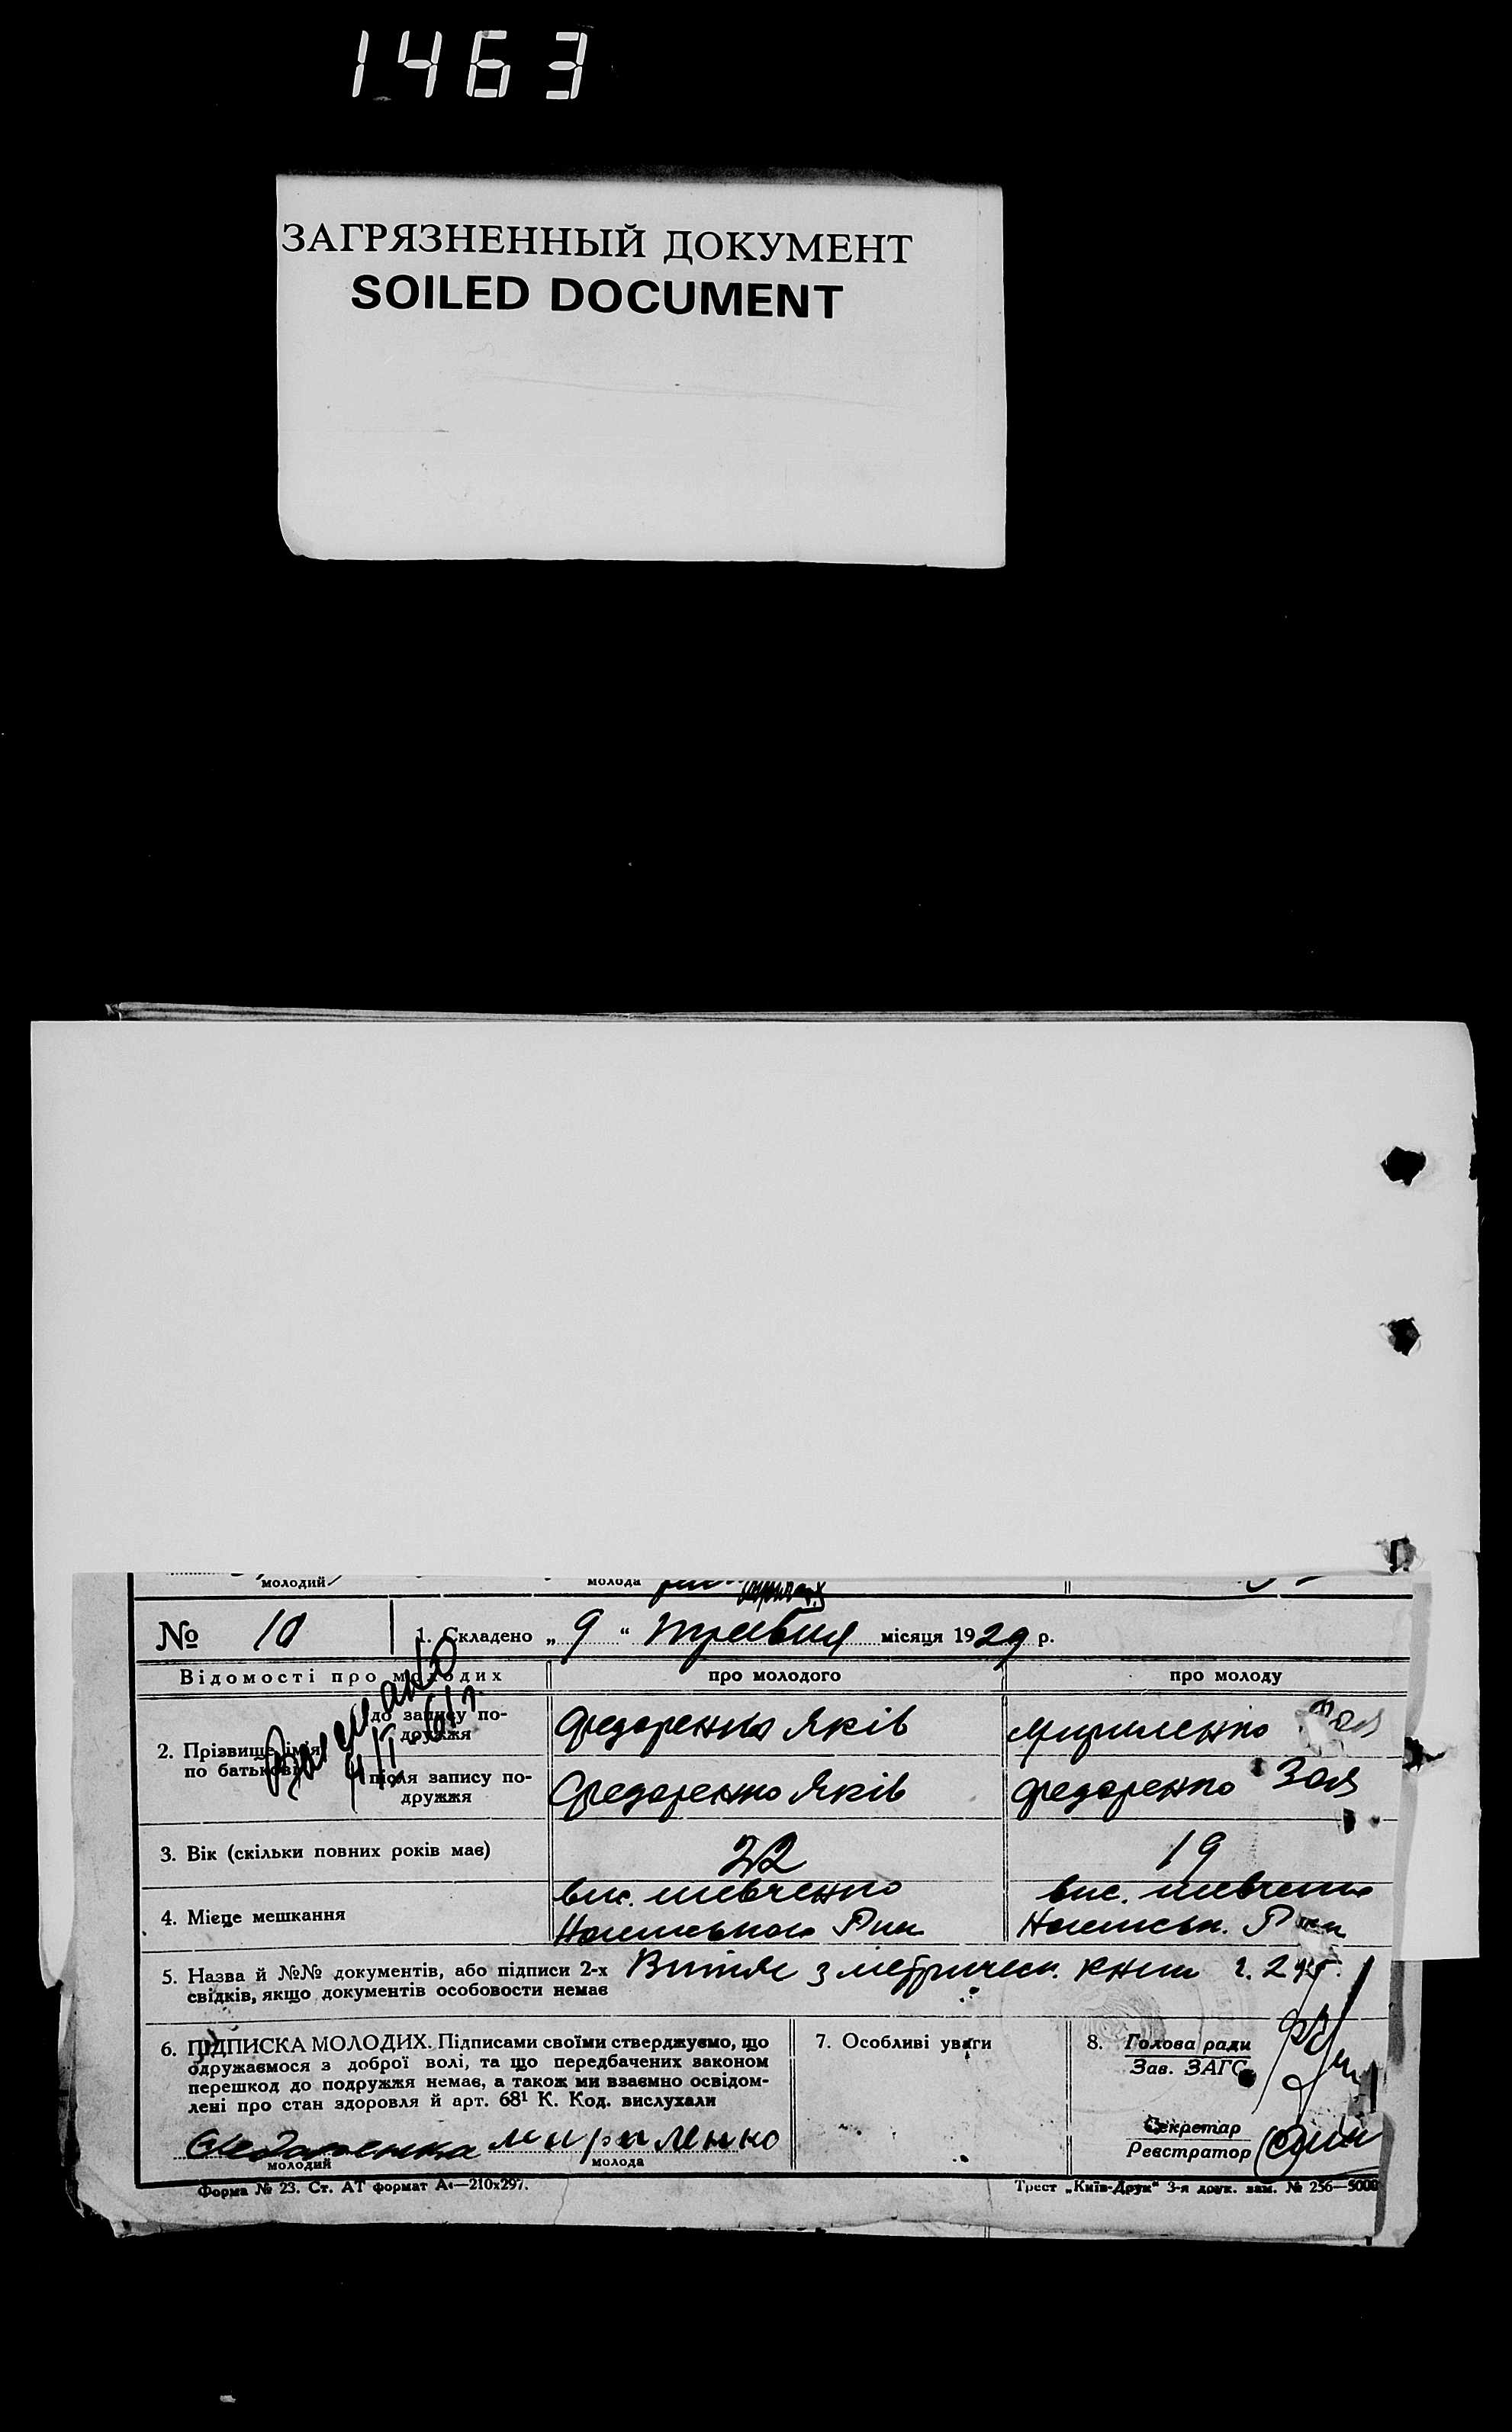 1463
ЗАГРЯЗНЕННЫЙ ДОКУМЕНТ
SOILED DOCUMENT
молодий
молода
№ 10
1. Складено „ 9 “ травня місяця 1929 р.
Відомості про молодих
про молодого
про молоду
2. Прізвище, імя по батькові
до запису подружжя
Федоренко Яків
Мириленко Зоя
після запису подружжя
Федоренко Яків
Федоренко Зоя
3. Вік (скільки повних років має)
22
19
4. Місце мешкання
вис. Шевченко
вис. Шевченко
5. Назва й №№ документів, або підписи 2-х
свідків, якщо документів особовости немає
Витяг з метрическ. книги
6. ПІДПИСКА МОЛОДИХ. Підписами своїми стверджуємо, що
одружаємося з доброї волі, та що передбачених законом
перешкод до подружжя немає, а також ми взаємно освідом-
лені про стан здоровля й арт. 68¹ К. Код. вислухали
Федоренко Мириленко
молодий
молода
7. Особливі уваги
8. Голова ради
Зав. ЗАГС
Секретар
Реєстратор
Форма № 23. Ст. АТ формат А4—210х297.
Трест „Київ-Друк“ 3-я друк. зам. № 256—5000